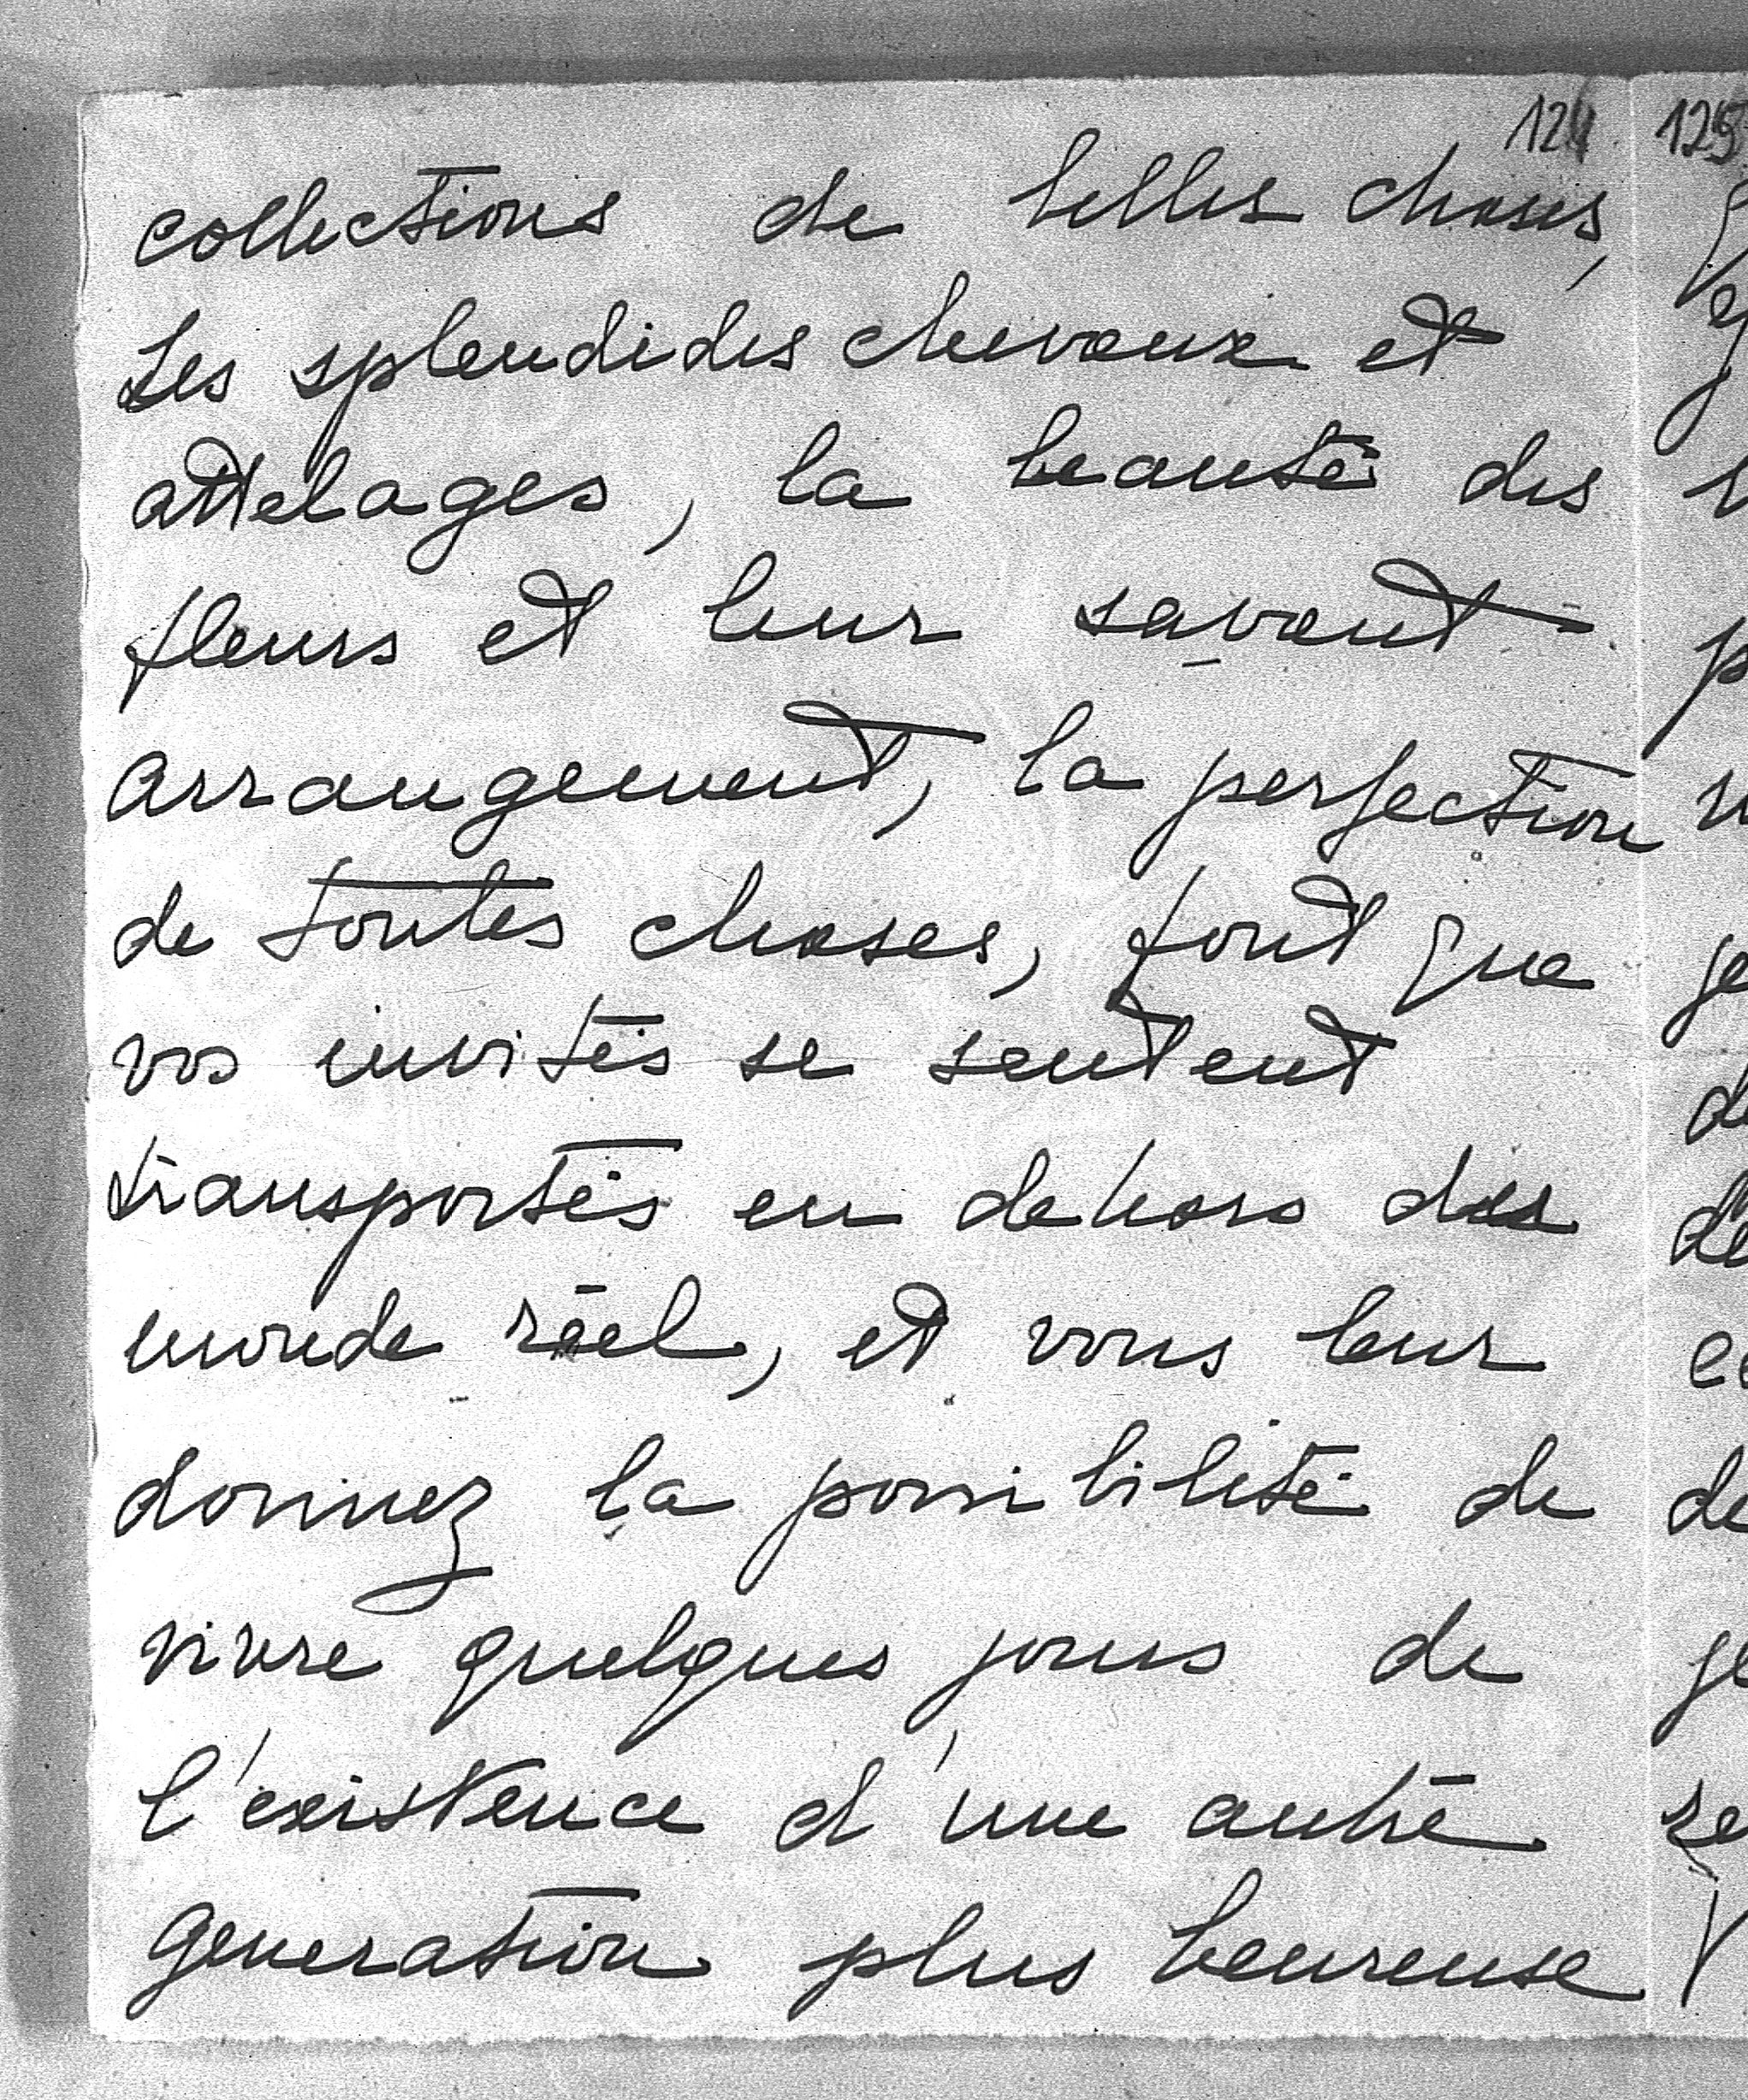 124
collections de belles choses,
Les splendides chevaux et
attelages, la beauté des
fleurs et leur savant
arrangement, la perfection
de toutes choses, font que
vos invités se sentent
transportés en dehors du
monde réel, et vous leur
donnez la possibilité de
vivre quelques jours de
l'existence d'une autre
generation plus heureuse